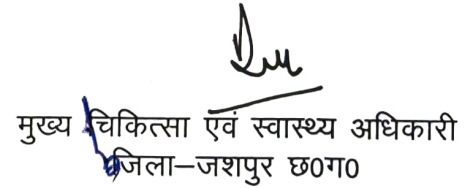 मुख्य चिकित्सा एवं स्वास्थ्य अधिकारी
जिला–जशपुर छ0ग0